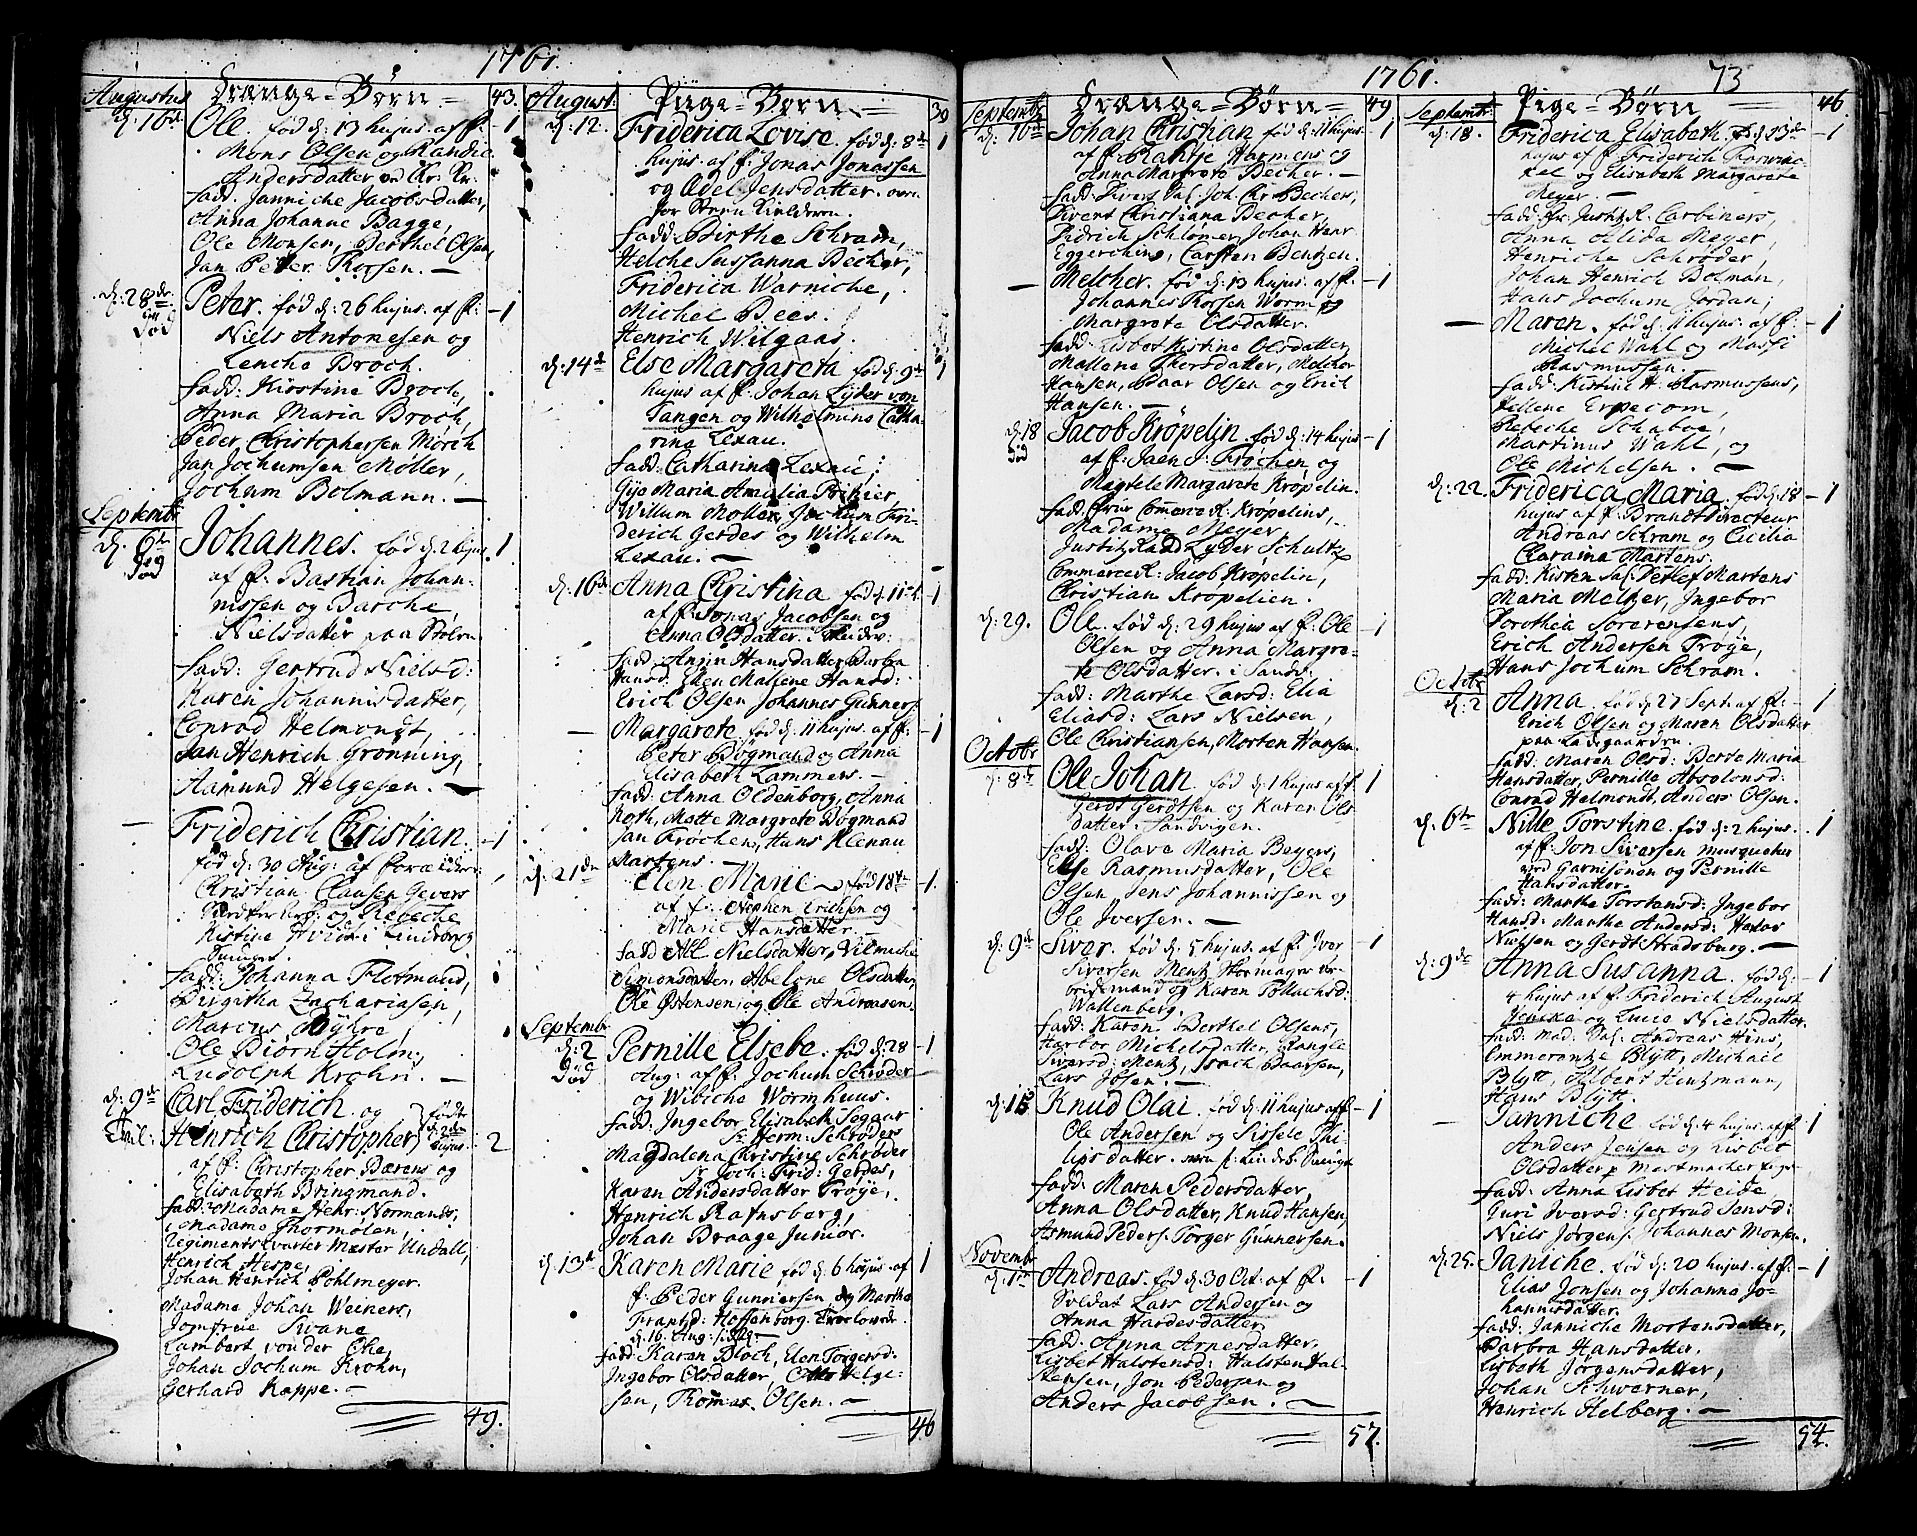 1761.
Augustus
Drænge-Børn
43.
d: 16de
Ole. fød d: 13 hujus. af f: 1
Mons Olsen og Randie
Andersdatter
fadd: Janniche Jacobsdatter,
Anna Johanne Bagge,
Ole Monsen, Berthel Olsen,
Jan Peter Rossen.
d: 28de
død
Peter. fød d: 26 hujus. af f: 1
Niels Antonesen og
Lenche Broch.
fadd: Kirstine Broch,
Anna Maria Broch,
Peder Christophersen Mørch
Jan Jochumsen Møller,
Jochum Bolmann.
Septembr
d: 6te
død
Johannes. fød d: 2 hujus. 1
af f: Bastian Johan-
nissen og Barche
Nielsdatter paa Stølen
fadd: Gertrud Nielsd:
Karen Johannisdatter,
Conrad Helmondt,
Jan Henrich Grønning,
Aamund Helgesen.
Friderich Christian. 1
fød d: 30 Aug: af forældre
Christian Clausen Gevers
og Rebeche
Kistine Hvidt i Lindeberg
fadd: Johanna Flotmand,
Birgitha Zachariasen,
Marcus Myhre,
Ole Biørn Holm,
Ludolph Krohn.
d: 9de
Tvil:
Carl Friderich og
Henrich Christopher fødte d: 2den hujus. 2
af f: Christopher Bærens og
Elisabeth Bringmand.
fadd: Madame Hehr: Normands,
Madame Thormølen,
Regiments Qvarter Mester Undall,
Henrich Hespe,
Johan Henrich Pohlmeyer.
Madame Johan Weiners,
Jomfrue Svane
Lambert von der Ehe,
Johan Jochum Krohn,
Gerhard Kappe.
49.
August.
Pige-Børn
39
d: 12.
Friderica Lovise. fød d: 8de 1
hujus. af f: Jonas Jonassen
og Adel Jensdatter.
fadd: Birthe Schram,
Helche Sussanna Becher,
Friderica Warniche,
Michel Bees.
Henrich Wilgaas.
d: 14de
Else Margareta fød d: 9de 1
hujus af f: Johan Lyder von
Tangen og Wilhelmina Catha-
rina Lexau.
fadd: Catharina Lexau;
Gije Maria Amalia
Willum Møller, Jochum Fri-
derich Gerdes og Wilhelm
Lexau.
d: 16de
Anna Christina fød d: 11te 1
af f: Jonas Jacobsen og
Anna Olsdatter.
fadd: Anna Hansdatter, Barbra
Hansd: Ellen Mallene Hansd:
Erich Olsen Johannes Gunners
Margarete fød d: 11 hujus af f: 1
Peter Døgmand og Anna
Elisabeth Lammers.
fadd: Anna Oldenborg, Anna
Roth, Mette Margrete Døgmand
Jan Frøchen, Hans Klenau
Martens.
d: 21de
Elen Marie fød 18de 1.
af f: Stephen Erichsen og
Marie Hansdatter.
fadd All Nielsdatter, Vilmiche
Simonsdatter, Abelone Olsdatter,
Ole Østensen, og Ole Andreasen.
Septembr
d: 2
død
Pernille Elsebe. fød d: 28 1
Aug: af f: Jochum Schrøder
og Wibiche Wormhuus.
fadd: Ingebor Elisabeth Seggar
Sr Herm: Schrøders
Magdalena Christine Schrøder
Sr Joch: Frid: Gerdes,
Karen Andersdatter Trøye,
Henrich Rafnsberg,
Johan Braage Junior.
d: 13de
Karen Marie fød d: 6 hujus af 1
f: Peder Gunnersen og Martha
Frantzd: Hoffenborg. Trolovede
d. 16. Aug:
fadd: Karen Bloch, Elen Torgersd:
Ingebor Olsdatter, Helge-
sen, Thomas Olsen.
46
1761.
73
Septembr
Drænge-Børn
49
d: 16de
Johan Christian fød d: 11 hujus 1
af f: Harmens og
Anna Margrete Becher.
fadd: Sivert Sal: Joh: Chr: Bechers,
Sivert Christiana Becher,
Didrich Schlømer, Johan Hanr
Eggerching, Carsten Bentzen.
Melcher. fød d: 13 hujus. af f: 1
Johannes Rossen Worm og
Margrete Olsdatter.
fadd: Lisbet Kistine Olsdatter,
Mallene Thersdatter, Melchior
Hansen, Paar Olsen og Eric
Hansen.
d: 18
død
Jacob Krøpelin fød d: 14 hujus 1
af f: Jaen J: Frøchen og
Megtele Margarete Krøpelin.
fadd: Frue Commerce R: Krøpelins,
Madame Meyer,
Justitz Raad Lyder Schultz
Commerce R: Jacob Krøpelin,
Christian Krøpelien.
d: 29.
Ole. fød d: 29 hujus af f: Ole 1
Olsen og Anna Margre-
te Olsdatter. i Sandv:
fadd: Marthe Larsd: Elia
Eliasd: Lars Nielsen,
Ole Christiansen, Morten Hansen.
Octobr
d: 8de
Ole Johan fød d: 1 hujus af f: 1
Gerdt Gerdtsen og Karen Ols
datter: Sandvigen.
fadd: Olave Maria Beyers,
Else Rasmusdatter, Ole
Olsen Jens Johannissen og
Ole Iversen.
d: 9de
Siver. fød d: 5 hujus. af f: Iver 1
Siversen Mentz
og Karen Tollachsd:
Wallenberg.
fadd: Karen Berthel Olsens,
Harbor Michelsdatter, Rangle
Siversd: Mentz, Isach Baarsen,
Lars Ibsen.
d: 15
Knud Olai. fød d: 11 hujus af f: 1
Ole Andersen og Sissele Phi-
lipsdatter.
fadd: Maren Pedersdatter,
Anna Olsdatter, Knud Hansen,
Asmund Peders: Torger Gunnersen.
Novembr
d: 1te
Andreas. fød d: 30 Oct. af f: 1
Soldat Lars Andersen og
Anna Hardesdatter.
fadd: Anna Arnesdatter,
Lisbet Halstensd: Halsten Hal-
stensen, Jon Pedersen og
Anders Jacobsen.
57.
Septembr.
Pige-Børn
46.
d: 18.
Friderica Elisabeth. fød d 13de 1
hujus af f: Friderich
og Elisabeth Margarete
Meyer.
fadd: Fr: Justitz R. Carbiners,
Anna Alida Meyer,
Henriche Schrøder,
Johan Henrich Bolman,
Hans Jochum Jordan,
Maren. fød d: 11 hujus. af f: 1
Michel Wahl og Massi
Rasmussen.
fadd: Kistine H: Rasmussens,
Hellene Erpecom,
Rebeche Schaboe,
Martinus Wahl, og
Ole Michelsen.
d: 22.
Friderica Maria. fød d: 18 1
hujus af f: Brandt Directeur
Andreas Schram og Cicilia
Martens.
fadd: Kisten Sal: Detlef Martens
Maria Meltzer, Ingebor
Dorothea Sørensens,
Erich Andersen Trøye,
Hans Jochum Schram.
Octobr
d: 2
Anna. fød d: 27 Sept. af f: 1
Erich Olsen og Maren Olsdatter
paa Ladegaarden.
fadd: Maren Olsd: Berte Maria
Hansdatter, Pernille Absolonsd:
Conrad Helmondt, Anders Olsen.
d: 6te
Nille Torstine. fød d: 2 hujus. 1
af f: Jon Siversen Musqueter
ved Garnisonen og Pernille
Hansdatter.
fadd: Marthe Torstensd: Ingebor
Hansd: Marthe Andersd: Hector
Nielsen og Gerdt Stradsburg.
d: 9de
Anna Susanna. fød d: 1
4 hujus af f: Friderich August
og Lucie Nielsdatter.
fadd: Mad: Sal: Andreas Hins,
Emmerentze Blÿtt, Michael
Blÿtt, Albert Hentzmann,
Hans Blÿtt.
Janniche fød d: 4 hujus. af f: 1
Anders Jensen og Lisbet
Olsdatter
fadd: Anna Lisbet Heide,
Guri Iversd: Gertrud Jensd:
Niels Jørgens: Johannes Monsen.
d: 25.
Janiche. fød d: 20 hujus. af f: 1
Elias Jonsen og Johanna Jo-
hannisdatter.
fadd: Janniche Mortensdatter,
Barbra Hansdatter,
Lisbeth Jørgensdatter,
Johan Schwerner,
Henrich Helberg.
54.